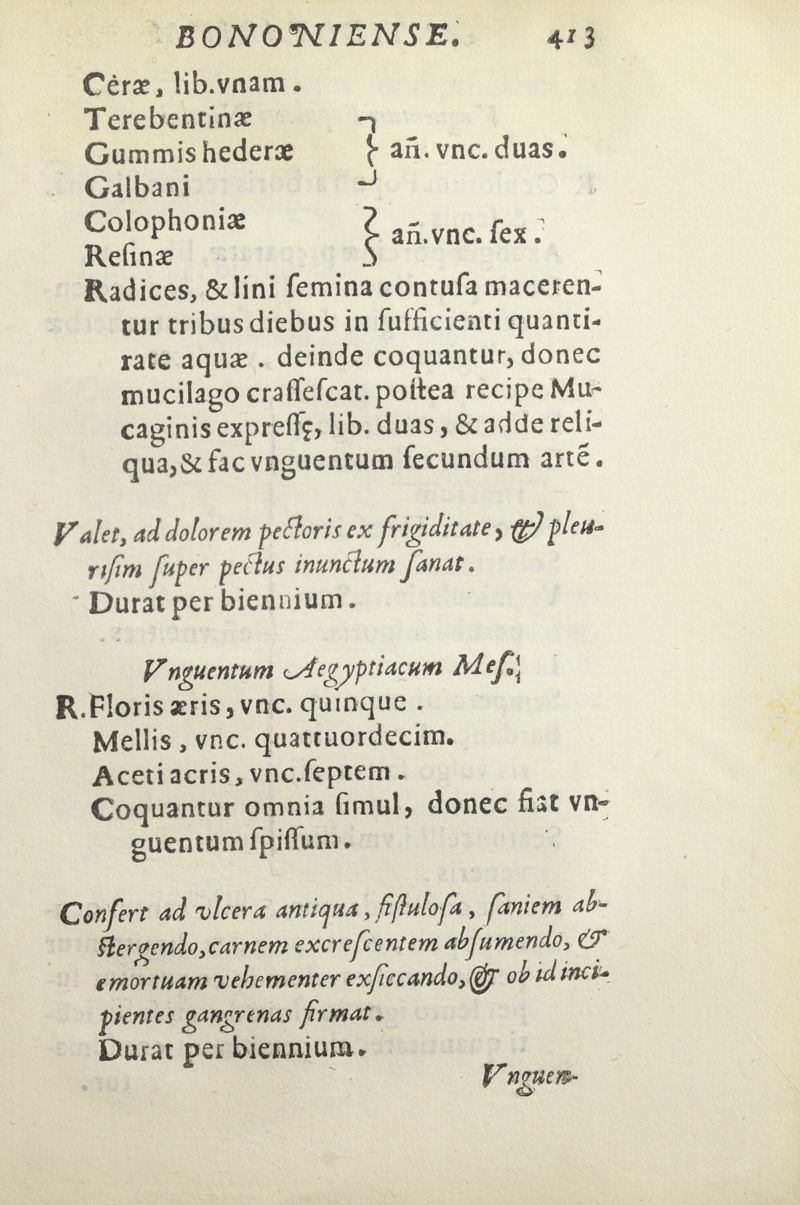 BONONIENSE. 413
Ceræ, lib.vnam.
Terebentinæ
Gummis hederæ } añ. vnc. duas.
Galbani
Colophoniæ
Reſinæ } añ.vnc. ſex.
Radices, & lini ſemina contuſa maceren-
tur tribus diebus in ſufficienti quanti-
tate aquæ. deinde coquantur, donec
mucilago craſſeſcat. poſtea recipe Mu-
caginis expreſſę, lib. duas, & adde reli-
qua, & fac vnguentum ſecundum artē.
Valet, ad dolorem pectoris ex frigiditate, & pleu-
riſim ſuper pectus inunctum ſanat.
Durat per biennium.
Vnguentum Aegyptiacum Meſ.
R.Floris æris, vnc. quinque.
Mellis, vnc. quattuordecim.
Aceti acris, vnc.ſeptem.
Coquantur omnia ſimul, donec fiat vn-
guentum ſpiſſum.
Confert ad vlcera antiqua, fiſtuloſa, ſaniem ab-
ſtergendo, carnem excreſcentem abſumendo, &
emortuam vehementer exſiccando, & ob id inci-
pientes gangrenas firmat.
Durat per biennium.
Vnguen-